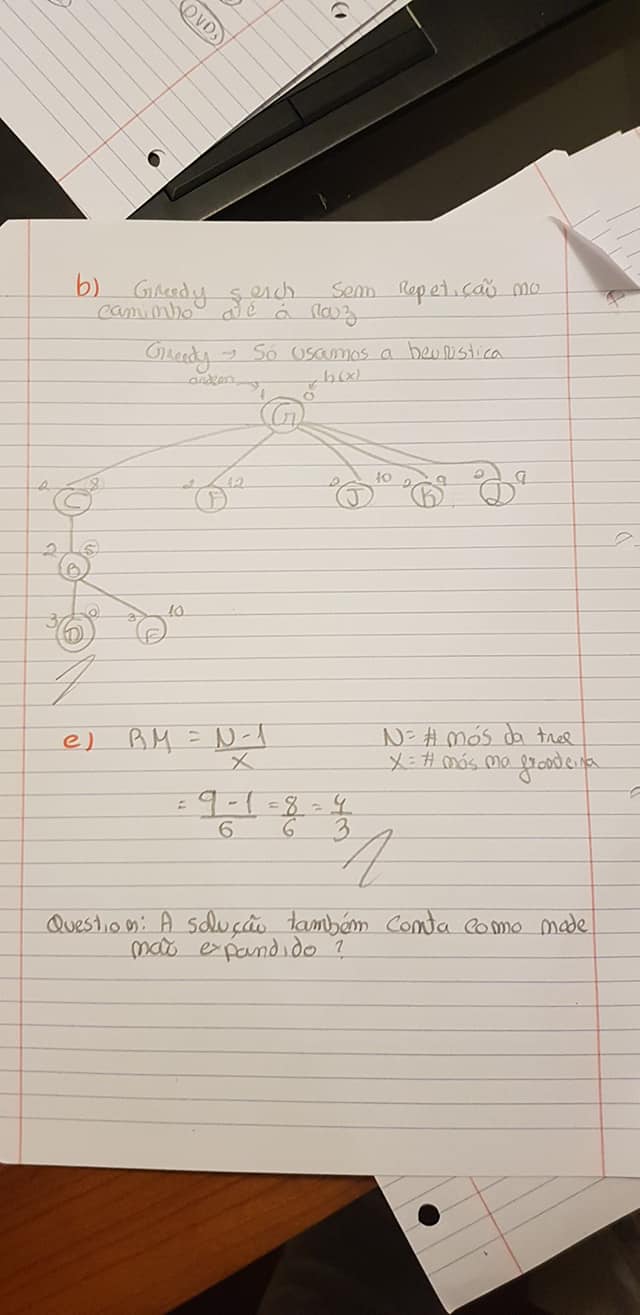 DVDs
b) Greedy serch sem repetição no
caminho até à raiz
Greedy → Só usamos a heuristica
ordem → 1 0 h(x)
G
2 8 2 12 2 10 2 9 2 9
C F J K
2 5
B
3 0 3 10
D E
e) RM = N-1
X
N= # nós da tree
X= # nós na
= 9-1 = 8 = 4
6 6 3
Question: A solução também conta como node
não expandido?